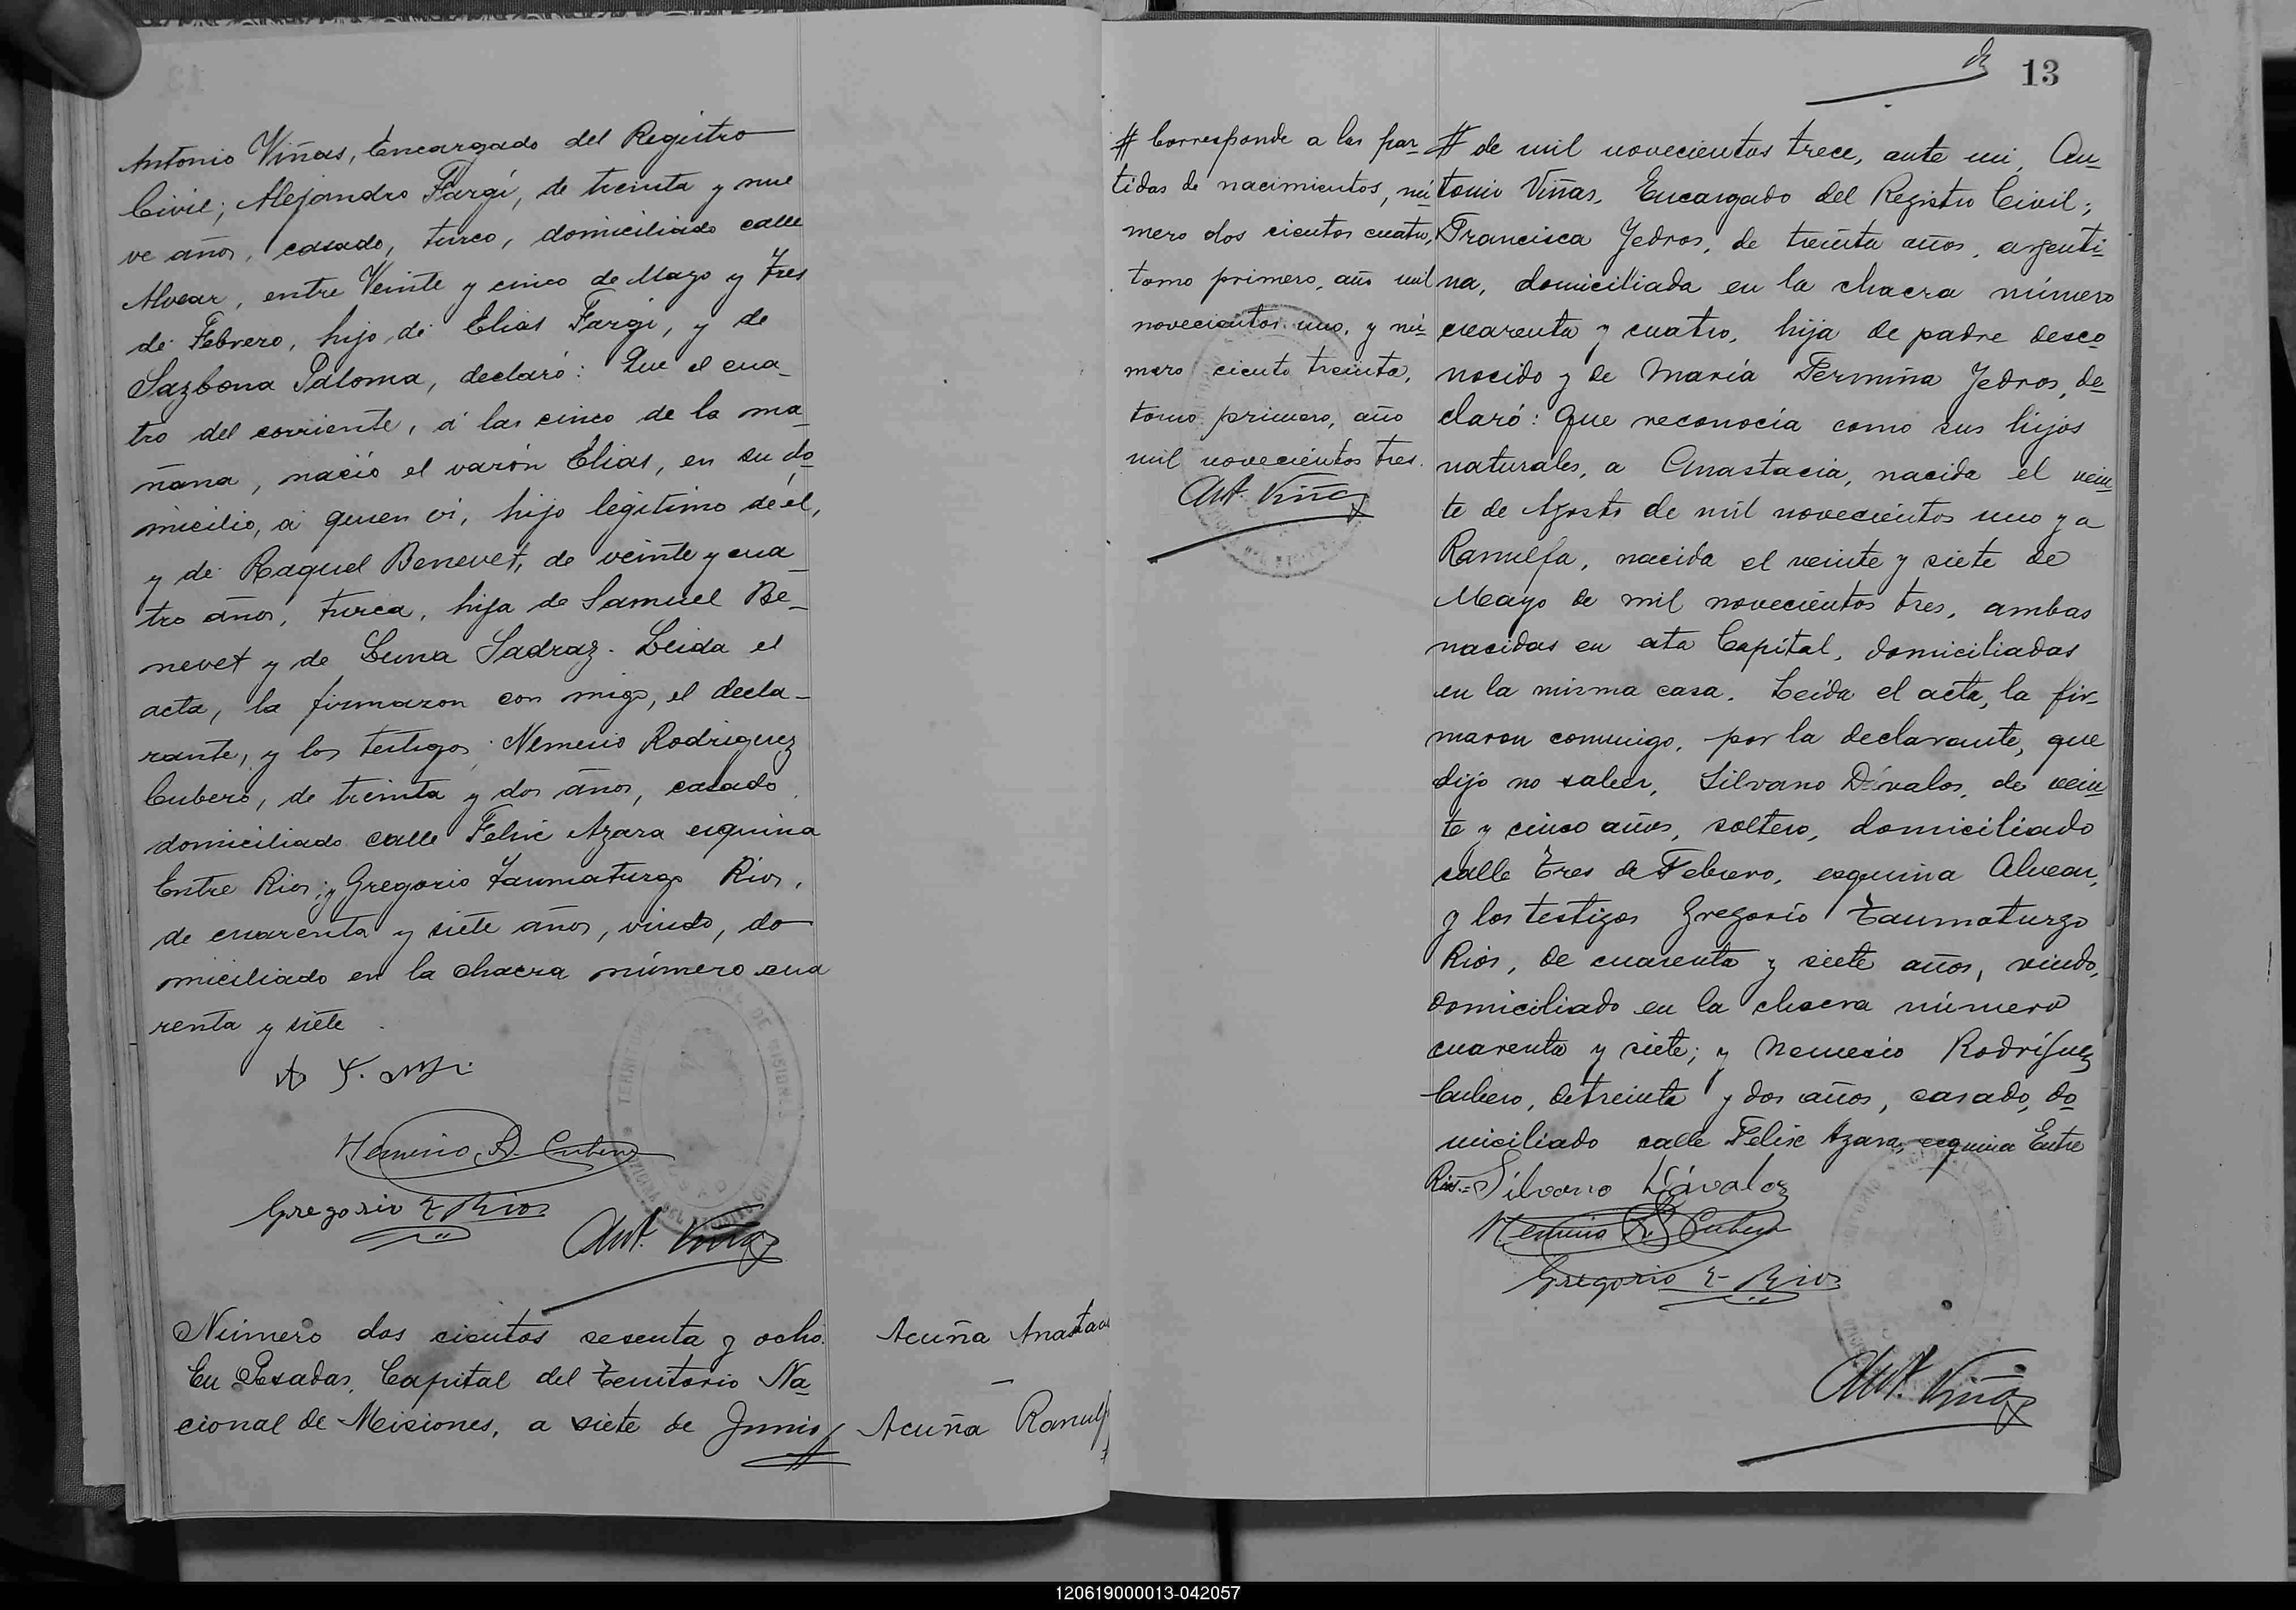 Antonio Viñas, Encargado del Registro
Civil; Alejandro Fargi, de treinta y nue
ve años, casado, turco, domiciliado calle
Alvear, entre Veinte y cinco de Mayo y Tres
de Febrero, hijo de Elias Fargi, y de
Sazbona Paloma, declaró: Que el cua-
tro del corriente, á las cinco de la ma
ñana, nació el varón Elias, en su do
micilio, á quien ví, hijo legitimo de él,
y de Raquel Benevet, de veinte y cua-
tro años, turca, hija de Samuel Be-
nevet y de Luna Sadraz. Leida el
acta, la firmaron con migo, el decla-
rante, y los testigos; Nemecio Rodriguez
Cubero, de treinta y dos años, casado,
domiciliado calle Felix Azara esquina
Entre Rios; y Gregorio Taumaturgo Rios,
de cuarenta y siete años, viudo, do
miciliado en la chacra número cua
renta y siete
Nemecio R. Cubero
Gregorio T. Rios
Ant. Viñas
Número dos cientos sesenta y ocho.
En Posadas, Capital del Territorio Na
cional de Misiones, a siete de Junio #
Acuña Anastac
Acuña Ranulf
13
# Corresponde a las par
tidas de nacimientos, nú
mero dos cientos cuatro,
tomo primero, año mil
novecientos uno, y nú
mero ciento treinta,
tomo primero, año
mil novecientos tres.
Ant. Viñas
# de mil novecientos trece, ante mi, An
tonio Viñas, Encargado del Registro Civil;
Francisca Jedros, de treinta años, argenti
na, domiciliada en la chacra número
cuarenta y cuatro, hija de padre desco
nocido y de María Fermina Jedros, de
claró: Que reconocía como sus hijos
naturales, a Anastacia, nacida el vein
te de Agosto de mil novecientos uno y a
Ranulfa, nacida el veinte y siete de
Mayo de mil novecientos tres, ambas
nacidas en esta Capital, domiciliadas
en la misma casa. Leída el acta, la fir-
maron conmigo, por la declarante, que
dijo no saber, Silvano Dávalos, de vein
te y cinco años, soltero, domiciliado
calle Tres de Febrero, esquina Alvear,
y los testigos Gregorio Taumaturgo
Rios, de cuarenta y siete años, viudo,
domiciliado en la chacra número
cuarenta y siete; y Nemecio Rodríguez
Cubero, de treinta y dos años, casado, do
miciliado calle Felix Azara, esquina Entre
Rios.= Silvano Dávalos
Nemecio R. Cubero
Gregorio T. Rios
Ant. Viñas
120619000013-042057